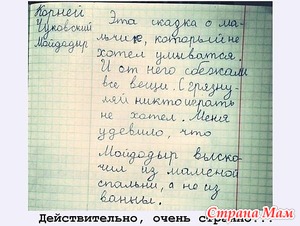 Корней
Чуковский
Мойдодыр
Эта сказка о ма-
льчике, который не
хотел умыватся.
И от него сбежали
все вещи. С грязну-
лей никто играть
не хотел. Меня
удевило, что
Мойдодыр выско-
чил из маменой
спальни, а не из
ванны.
Действительно, очень странно...
Страна Мам